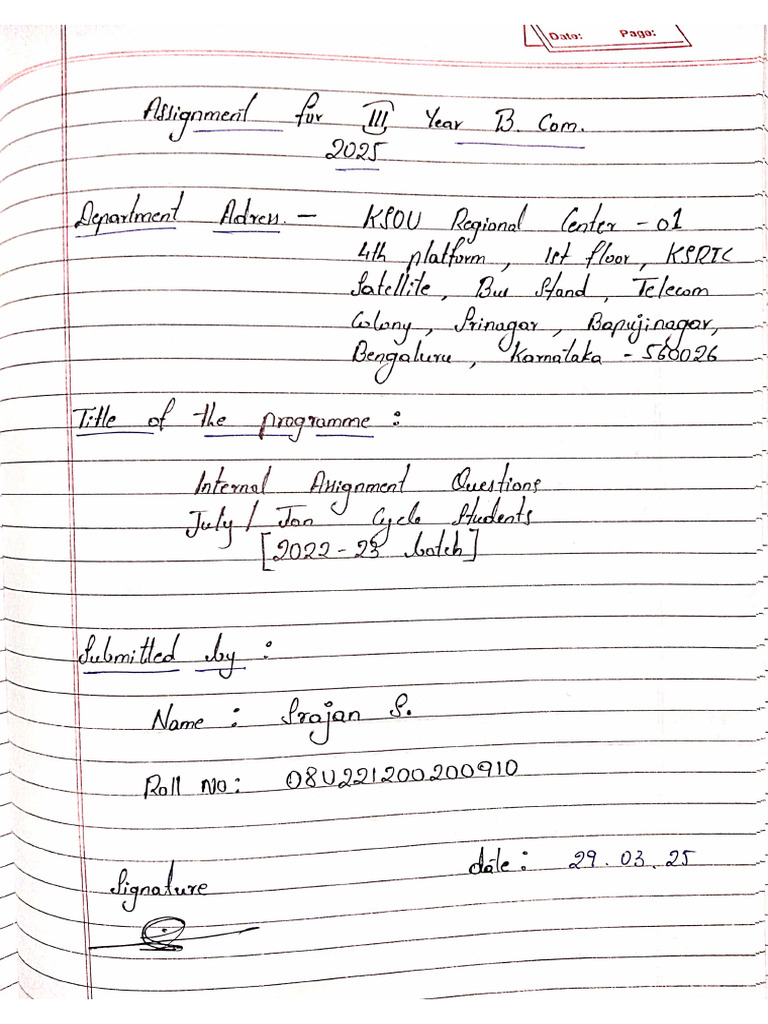 Date: Page:
Assignment for III Year B. Com.
2025
Department Adress. - KSOU Regional Center - 01
4th platform, 1st floor, KSRTC
Satellite, Bus Stand, Telecom
Colony, Srinagar, Bapujinagar,
Bengaluru, Karnataka - 560026
Title of the programme :
Internal Assignment Questions
July / Jan Cycle Students
[2022-23 batch]
Submitted by :
Name : Srajan S.
Roll No: 08U221200200910
date : 29.03.25
Signature